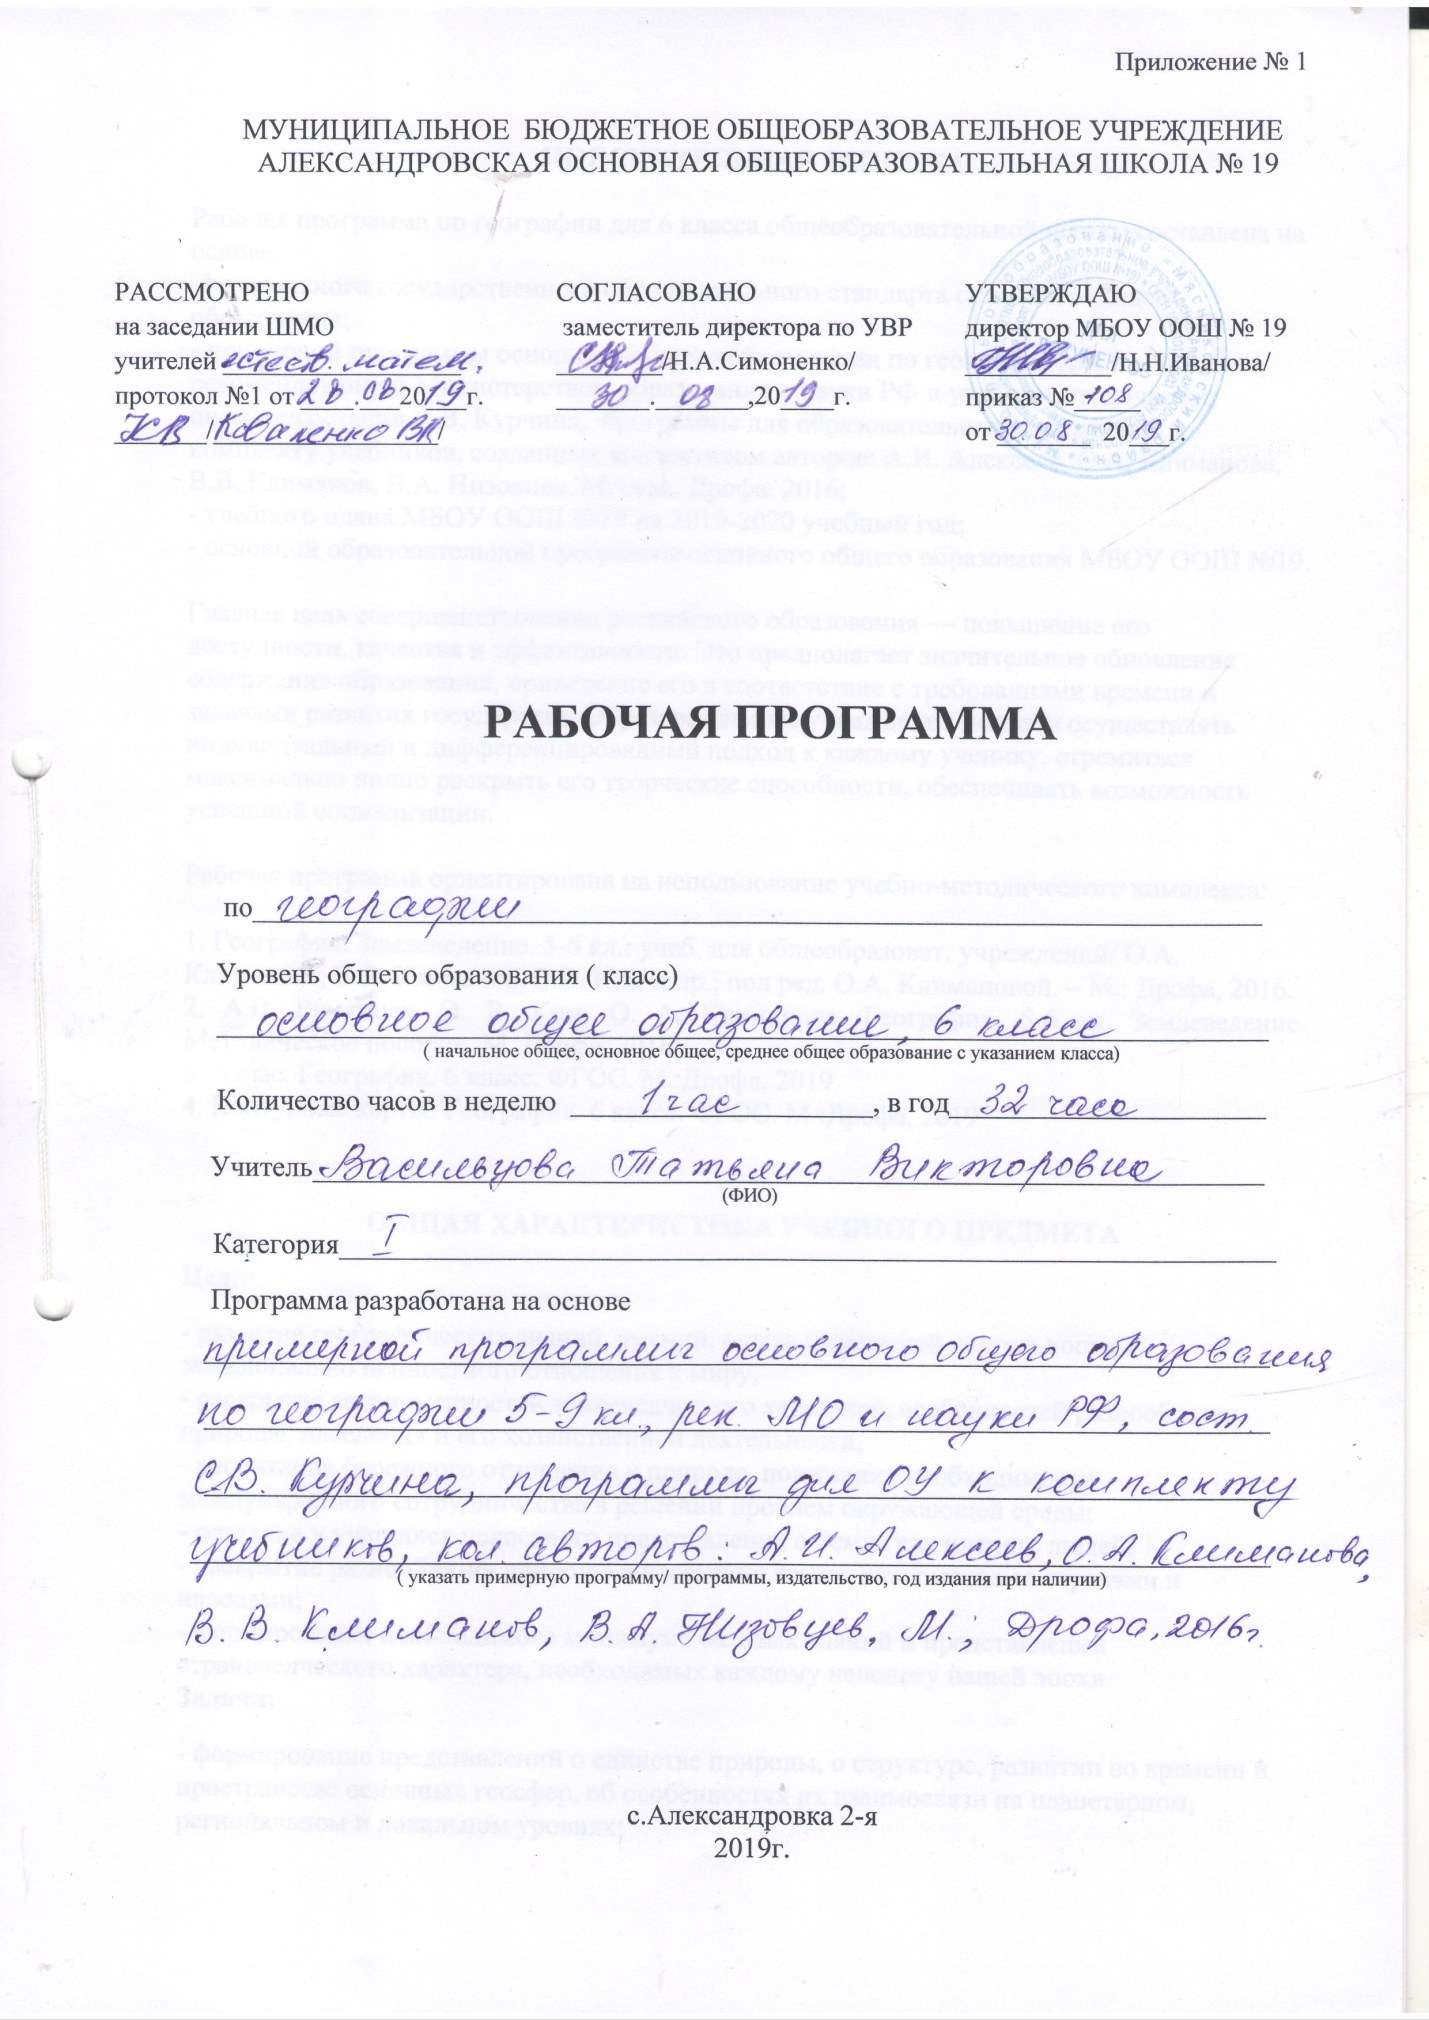 Приложение № 1
МУНИЦИПАЛЬНОЕ БЮДЖЕТНОЕ ОБЩЕОБРАЗОВАТЕЛЬНОЕ УЧРЕЖДЕНИЕ
АЛЕКСАНДРОВСКАЯ ОСНОВНАЯ ОБЩЕОБРАЗОВАТЕЛЬНАЯ ШКОЛА № 19
РАССМОТРЕНО
на заседании ШМО
учителей естеств. матем.
протокол №1 от 28.08 2019 г.
/Коваленко ВК/
СОГЛАСОВАНО
заместитель директора по УВР
/Н.А.Симоненко/
30 . 08 ,2019 г.
УТВЕРЖДАЮ
директор МБОУ ООШ № 19
/Н.Н.Иванова/
приказ № 108
от 30.08 2019 г.
РАБОЧАЯ ПРОГРАММА
по географии
Уровень общего образования ( класс)
основное общее образование, 6 класс
( начальное общее, основное общее, среднее общее образование с указанием класса)
Количество часов в неделю 1 час, в год 32 часа
Учитель Васильцова Татьяна Викторовна
(ФИО)
Категория I
Программа разработана на основе
примерной программы основного общего образования
по географии 5-9 кл., рек. МО и науки РФ, сост.
С.В. Курчина, программы для ОУ к комплекту
учебников, кол. авторов: А.И. Алексеев, О.А. Климанова,
( указать примерную программу/ программы, издательство, год издания при наличии)
В.В Климанов, В.А. Низовцев, М.; Дрофа, 2016г.
с.Александровка 2-я
2019г.